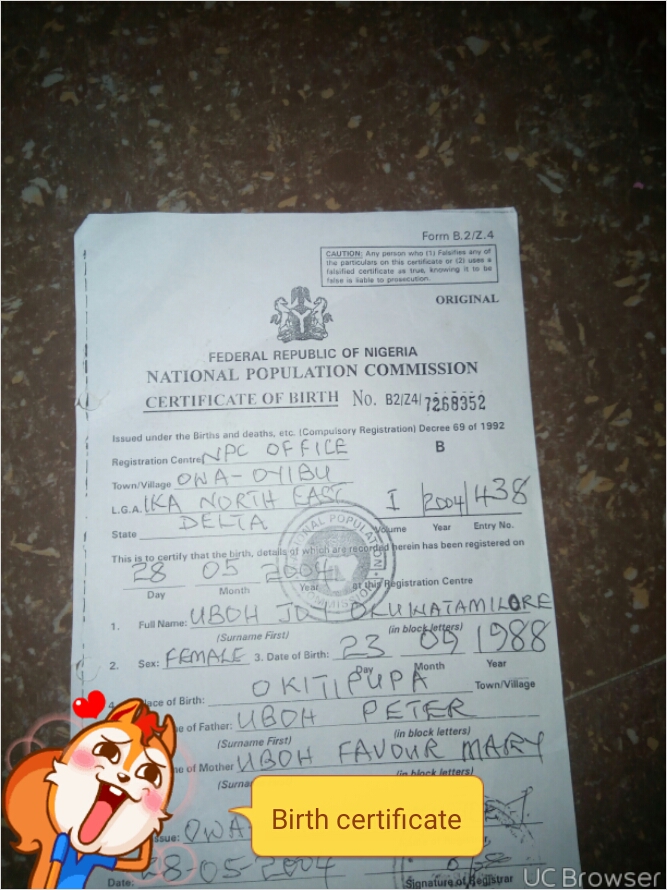 Form B.2/Z.4
CAUTION: Any person who (1) Falsifies any of
the particulars on this certificate or (2) uses a
falsified certificate as true, knowing it to be
false is liable to prosecution.
ORIGINAL
FEDERAL REPUBLIC OF NIGERIA
NATIONAL POPULATION COMMISSION
CERTIFICATE OF BIRTH No. B2/Z4/ 7268352
Issued under the Births and deaths, etc. (Compulsory Registration) Decree 69 of 1992
Registration Centre NPC OFFICE B
Town/Village OWA-OYIBU
L.G.A. IKA NORTH EAST I 2004 438
State DELTA Volume Year Entry No.
This is to certify that the birth, details of which are recorded herein has been registered on
28 05 2004 at this Registration Centre
Day Month Year
1. Full Name: UBOH JOY
(Surname First) (in block letters)
2. Sex: FEMALE 3. Date of Birth: 23 1988
Day Month Year
OKITIPUPA Town/Village
4. lace of Birth:
e of Father: UBOH PETER
(Surname First) (in block letters)
e of Mother UBOH FAVOUR MARY
(Surna (in block letters)
ssue: OWA-
Birth certificate
Date: 28-05-2004
Signature of Registrar
UC Browser